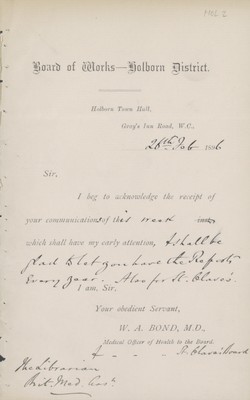 Board of Works—Holborn District.
Holborn Town Hall,
Gray's Inn Road, W.C.,
26th Feb 1896
Sir,
I beg to acknowledge the receipt of
your communication of this week
which shall have my early attention, & shall be
glad to let you have the Reports
Every year. Also for St. Olave's.
I am, Sir,
Your obedient Servant,
W. A. BOND, M.D.,
Medical Officer of Health to the Board.
& St. Olave's Board
The Librarian
Brit. Med. Assn.